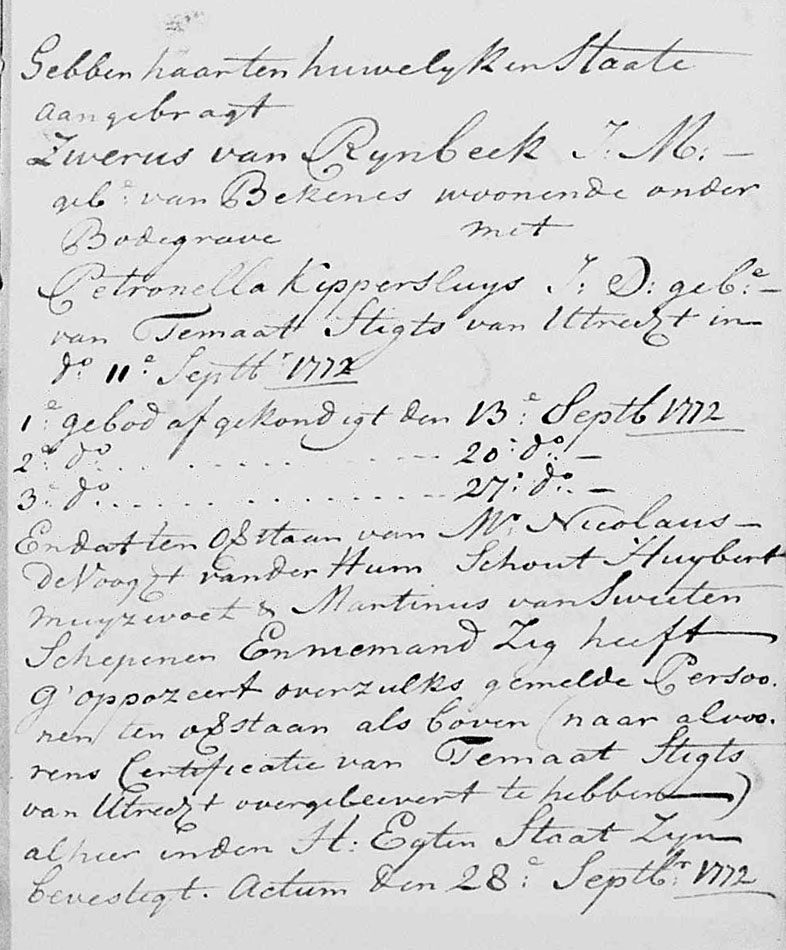 Hebben haar ten huwelyk en Staate
aangebragt
Zwerus van Rynbeek J: M: —
geb:e van Bekenes woonende onder
Bodegrave met
Petronella Kippersluys J: D: geb:e —
van Temaat Stigts van Utrecht in
do 11e Septbr 1772
1e: gebod afgekondigt den 13:e Septb 1772
2e: do. . . . . . . . . . — — 20: do: —
3: do. . . . . . . . . . — — 27: do: —
En dat ten Ofstaan van Mr Nicolaus —
De Voogt van der Hum Schout Huybert
Muyzevoet & Martinus van Swieten
Schepenen En niemand Zig heeft —
G'oppozeert overzulks gemelde Persoo.
nen ten ofstaan als boven (naar alvoo.
rens Certificatie van Temaat Stigts
van Utrecht overgeleevert te hebben —)
alhier in den H: Egten Staat Zyn
bevestigt. Actum den 28:e Septbr: 1772